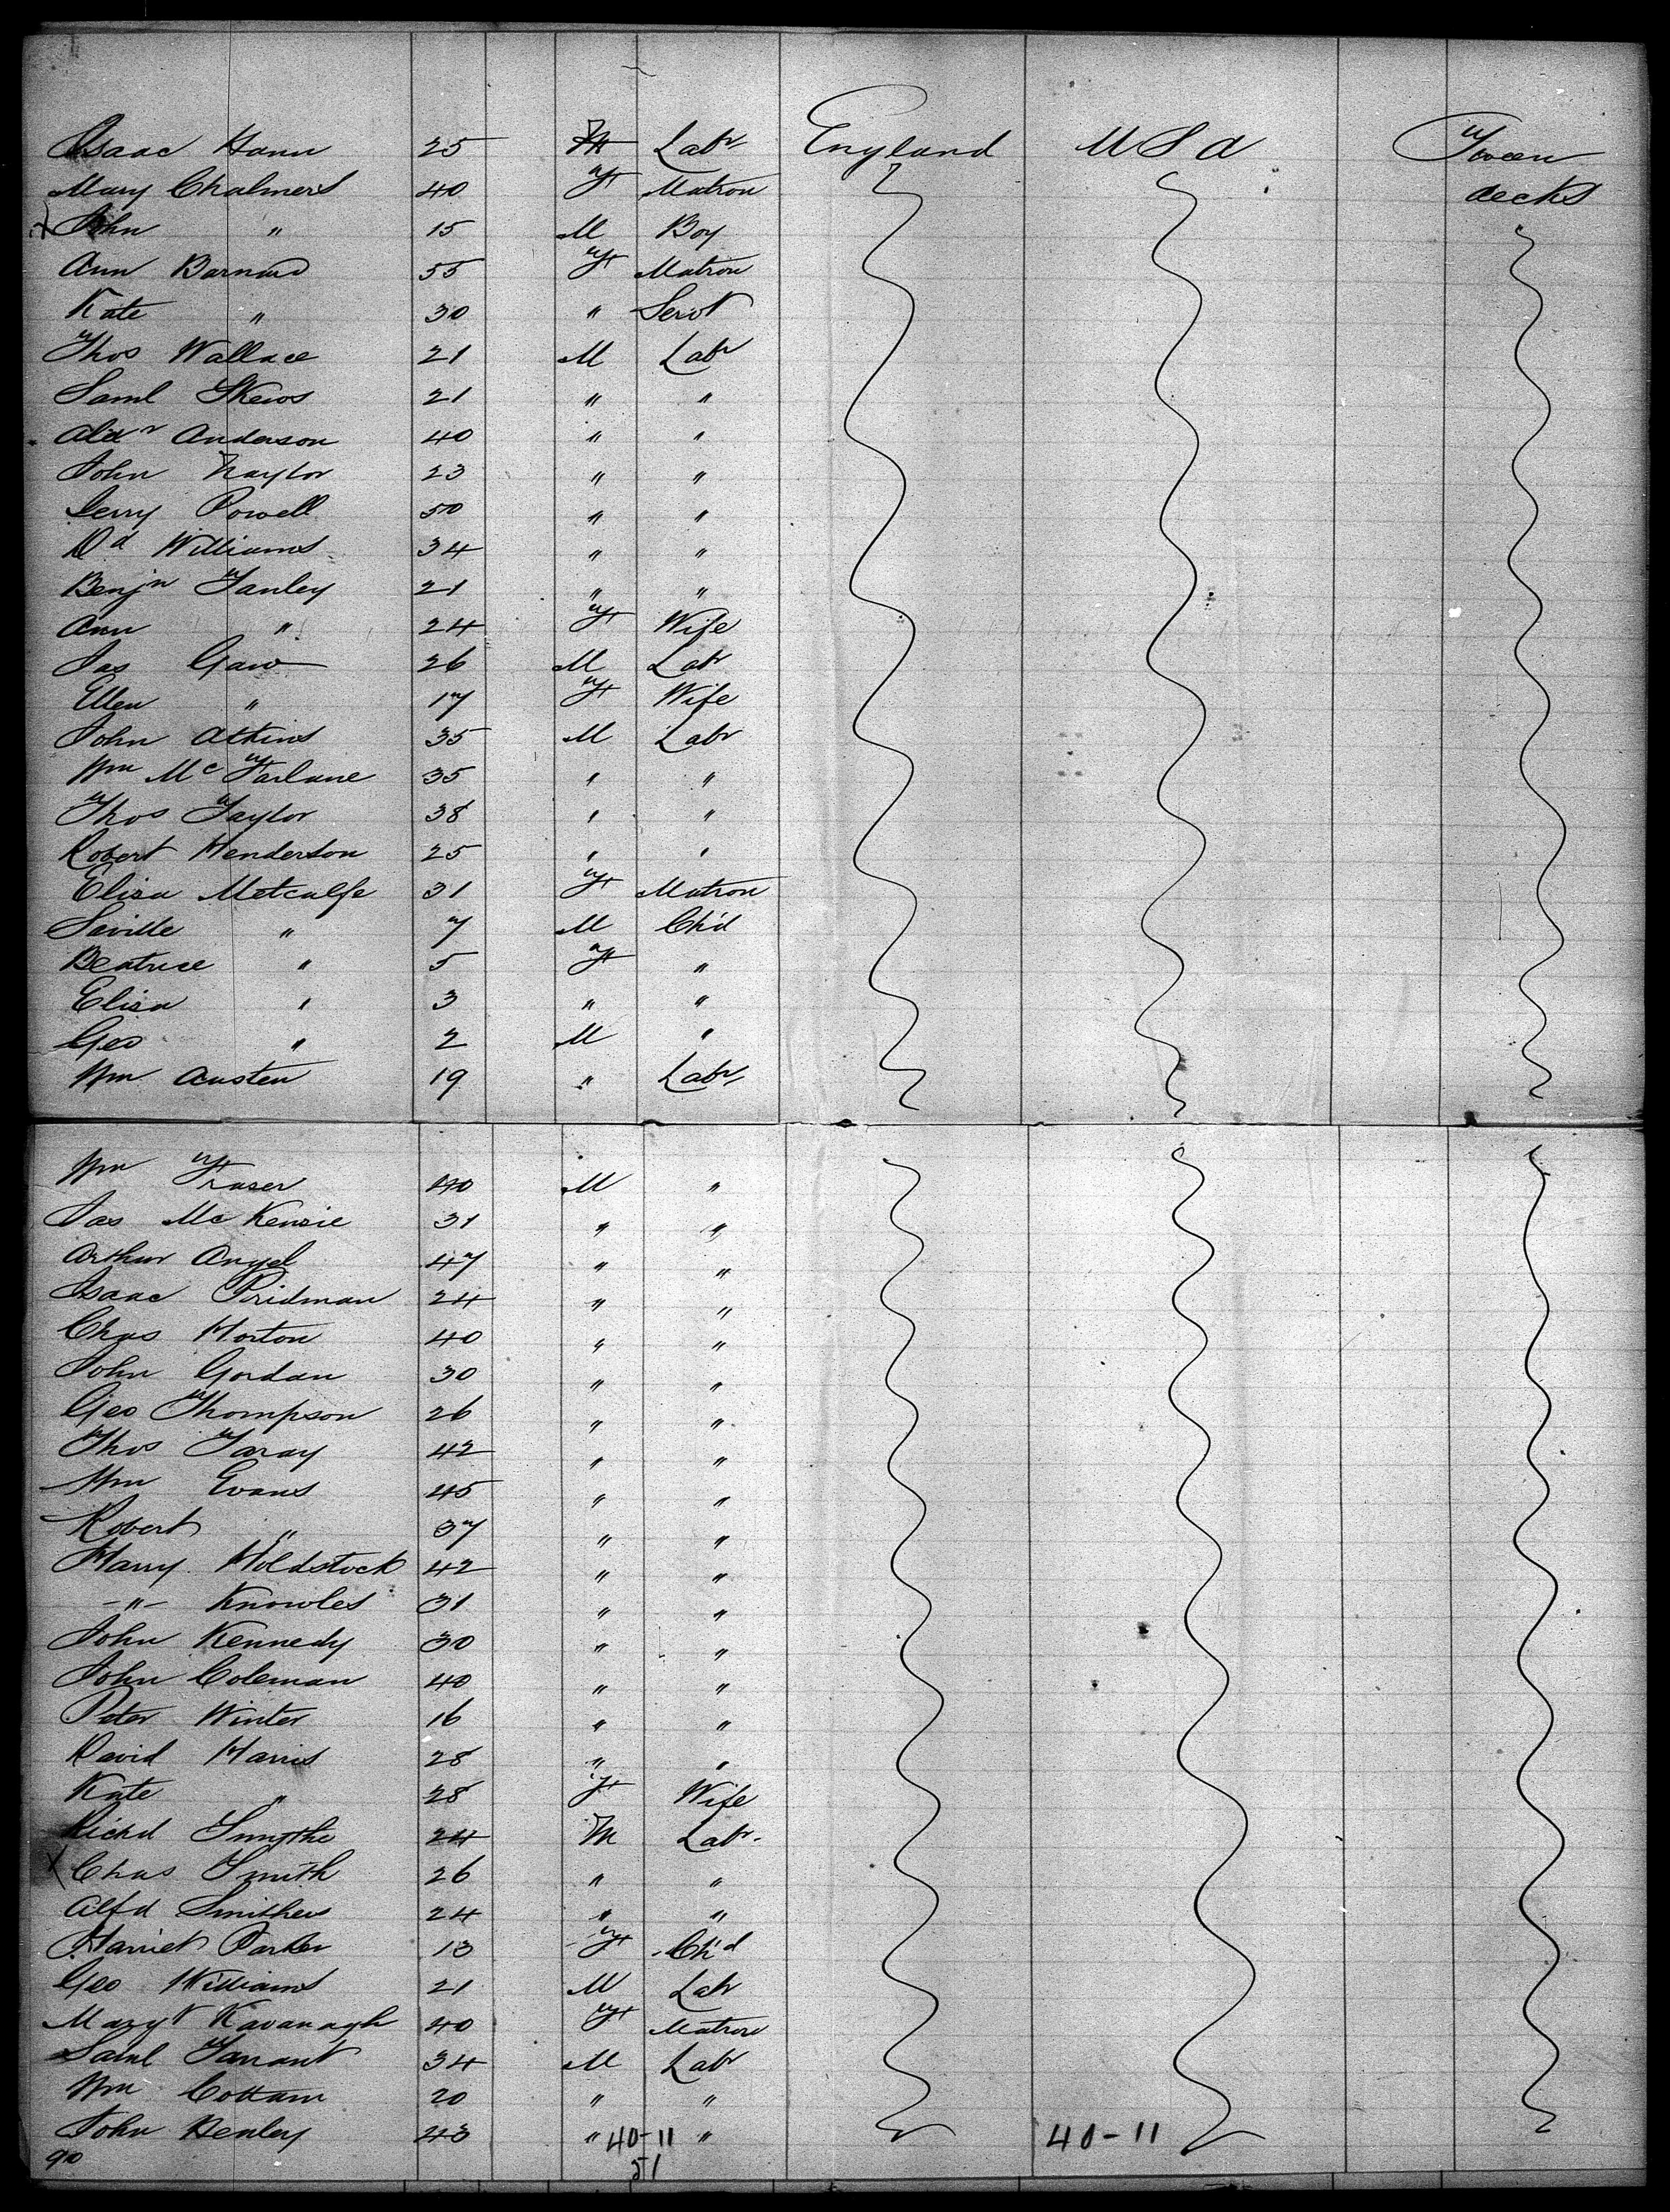 Isaac Hann 25 M Labr England U S A Tween
Mary Chalmers 40 F Matron decks
x John " 15 M Boy
Ann Barnard 55 F Matron
Kate " 30 " Servt
Thos Wallace 21 M Labr
Saml Skews 21 " "
Alexr Anderson 40 " "
John Naylor 23 " "
Gerry Powell 50 " "
Dd Williams 34 " "
Benjn Tanley 21 " "
Ann " 24 F Wife
Jas Gaw 26 M Labr
Ellen " 17 F Wife
John Atkins 35 M Labr
Wm McFarlane 35 " "
Thos Taylor 38 " "
Robert Henderson 25 " "
Eliza Metcalfe 31 F Matron
Saville " 7 M Ch'd
Beatrice " 5 F "
Eliza " 3 " "
Geo " 2 M "
Wm Austen 19 " Labr
Wm Fraser 40 M "
Jas McKenzie 31 " "
Arthur Angel 47 " "
Isaac Pridman 24 " "
Chas Horton 40 " "
John Gordan 30 " "
Geo Thompson 26 " "
Thos Taray 42 " "
Wm Evans 45 " "
Robert " 37 " "
Harry Holdstock 42 " "
-"- Knowles 31 " "
John Kennedy 30 " "
John Coleman 40 " "
Peter Winter 16 " "
David Harris 28 " "
Kate " 28 F Wife
Richd Smythe 24 M Labr
x Chas Smith 26 " "
Alfd Smithers 24 " "
Harriet Parker 13 F Ch'd
Geo Williams 21 M Labr
Margt Kavanagh 40 F Matron
Saml Tarrant 34 M Labr
Wm Cottam 20 " "
John Henley 43 " 40-11 " 40-11
90 51